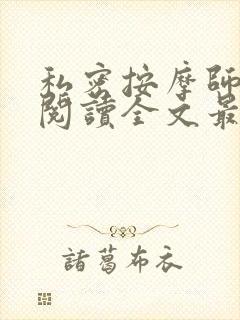 私密按摩師
閱讀全文最
諸葛布衣